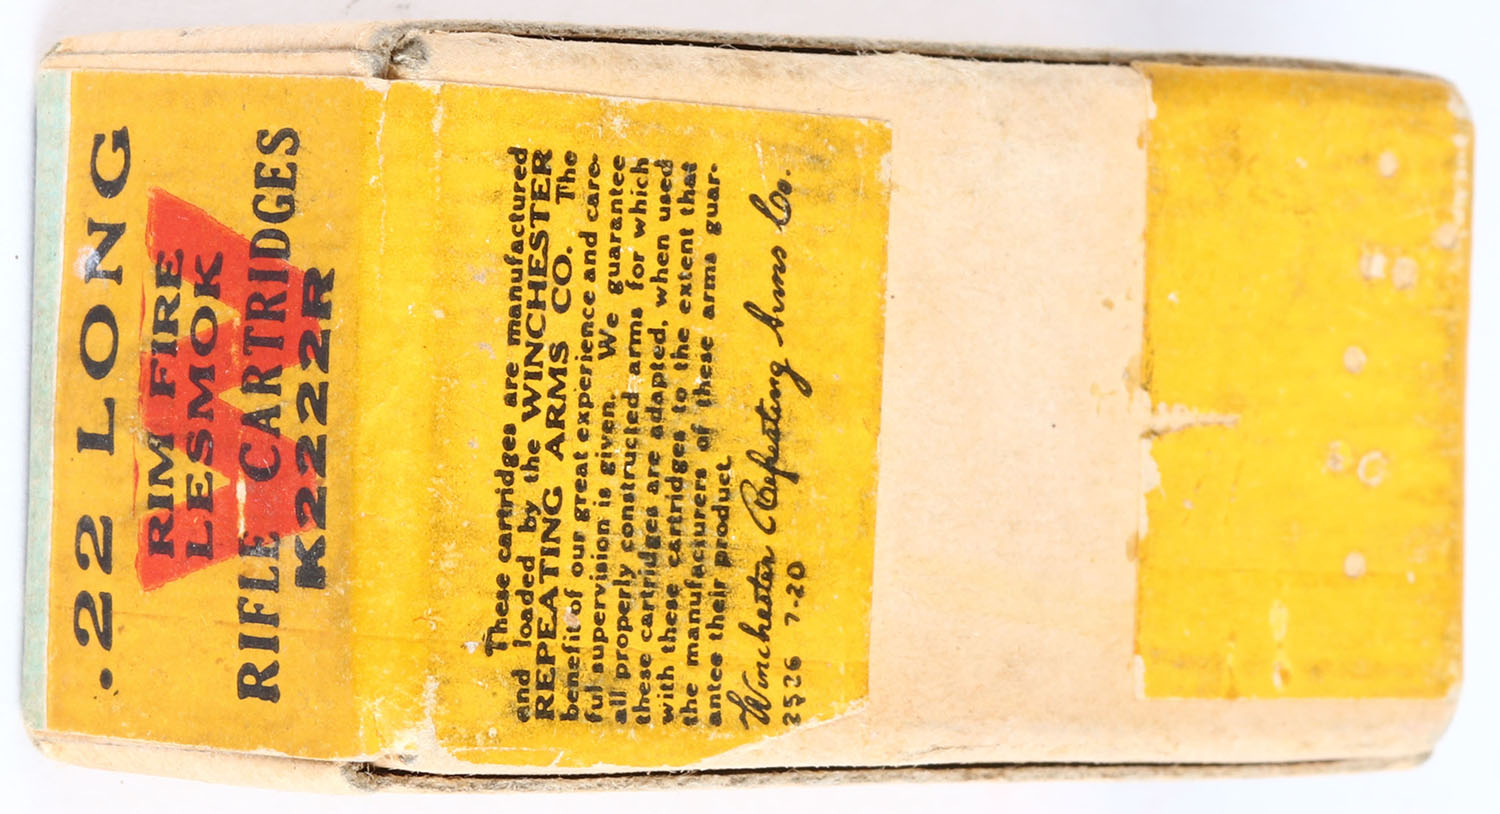 .22 LONG
RIM FIRE
LESMOK
RIFLE CARTRIDGES
K2222R
These cartridges are manufactured
and loaded by the WINCHESTER
REPEATING ARMS CO. The
benefit of our great experience and care-
ful supervision is given. We guarantee
all properly constructed arms for which
these cartridges are adapted, when used
with these cartridges to the extent that
the manufacturers of these arms guar-
antee their product.
Winchester Repeating Arms Co.
7-20